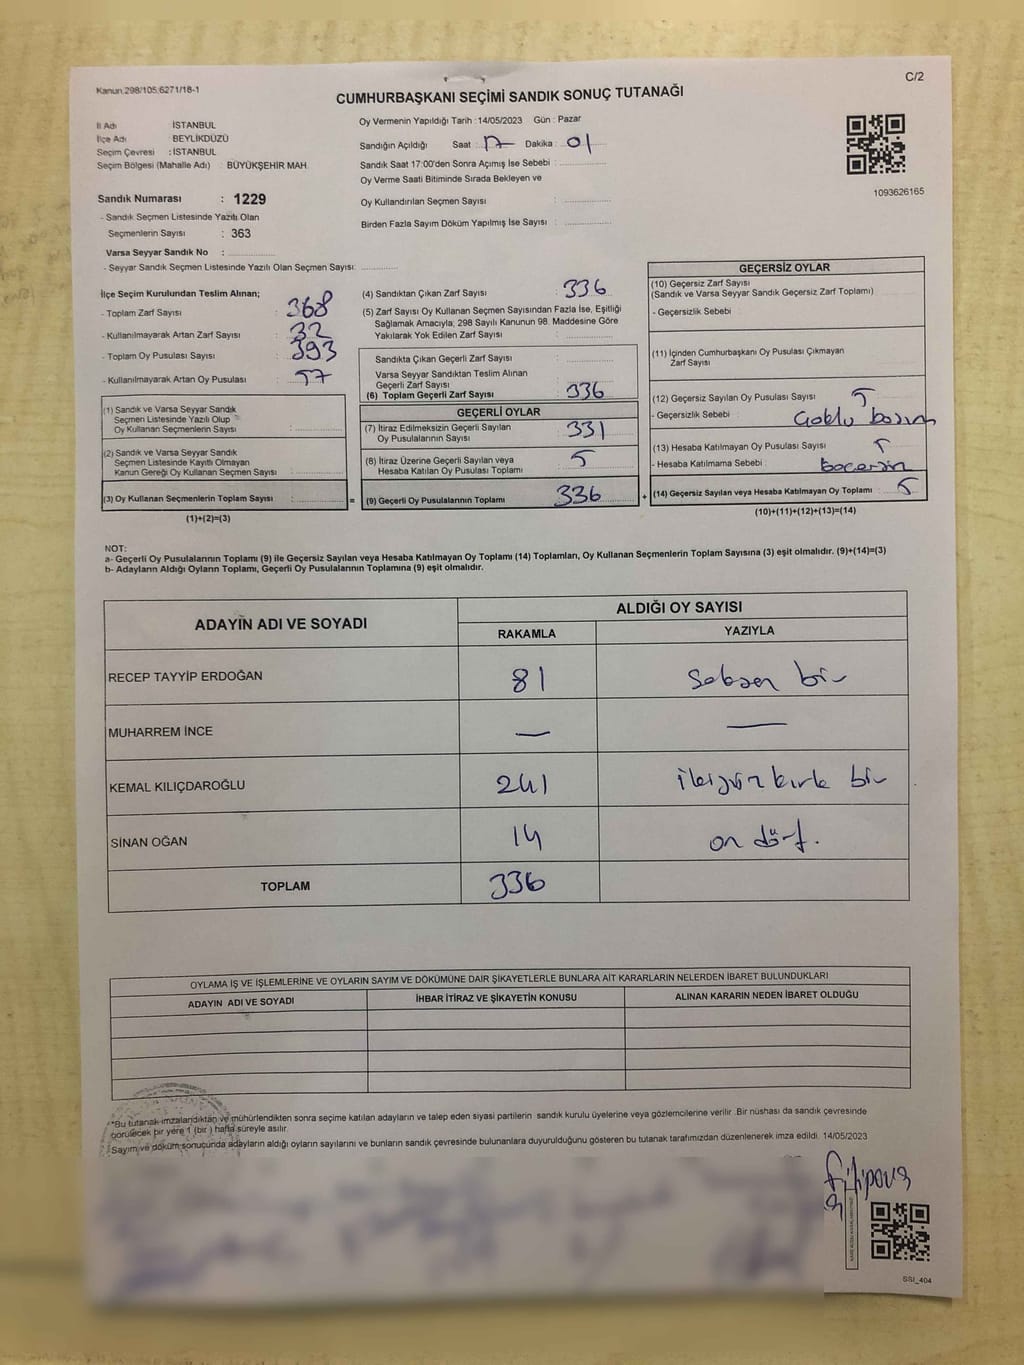 Kanun.298/105;6271/18-1
C/2
CUMHURBAŞKANI SEÇİMİ SANDIK SONUÇ TUTANAĞI
İl Adı İSTANBUL
İlçe Adı BEYLİKDÜZÜ
Seçim Çevresi : İSTANBUL
Seçim Bölgesi (Mahalle Adı) : BÜYÜKŞEHİR MAH.
Oy Vermenin Yapıldığı Tarih : 14/05/2023 Gün : Pazar
Sandığın Açıldığı Saat : 17 Dakika : 01
Sandık Saat 17:00'den Sonra Açımış İse Sebebi :
Oy Verme Saati Bitiminde Sırada Bekleyen ve
Oy Kullandırılan Seçmen Sayısı :
Birden Fazla Sayım Döküm Yapılmış İse Sayısı :
1093626165
Sandık Numarası : 1229
- Sandık Seçmen Listesinde Yazılı Olan
Seçmenlerin Sayısı : 363
Varsa Seyyar Sandık No :
- Seyyar Sandık Seçmen Listesinde Yazılı Olan Seçmen Sayısı:
İlçe Seçim Kurulundan Teslim Alınan;
- Toplam Zarf Sayısı : 368
- Kullanılmayarak Artan Zarf Sayısı : 32
- Toplam Oy Pusulası Sayısı : 393
- Kullanılmayarak Artan Oy Pusulası : 57
(1) Sandık ve Varsa Seyyar Sandık
Seçmen Listesinde Yazılı Olup
Oy Kullanan Seçmenlerin Sayısı :
(2) Sandık ve Varsa Seyyar Sandık
Seçmen Listesinde Kayıtlı Olmayan
Kanun Gereği Oy Kullanan Seçmen Sayısı :
(3) Oy Kullanan Seçmenlerin Toplam Sayısı : =
(1)+(2)=(3)
(4) Sandıktan Çıkan Zarf Sayısı : 336
(5) Zarf Sayısı Oy Kullanan Seçmen Sayısından Fazla İse, Eşitliği
Sağlamak Amacıyla, 298 Sayılı Kanunun 98. Maddesine Göre
Yakılarak Yok Edilen Zarf Sayısı :
Sandıkta Çıkan Geçerli Zarf Sayısı :
Varsa Seyyar Sandıktan Teslim Alınan
Geçerli Zarf Sayısı :
(6) Toplam Geçerli Zarf Sayısı : 336
GEÇERLİ OYLAR
(7) İtiraz Edilmeksizin Geçerli Sayılan
Oy Pusulalarının Sayısı : 331
(8) İtiraz Üzerine Geçerli Sayılan veya
Hesaba Katılan Oy Pusulası Toplamı : 5
(9) Geçerli Oy Pusulalarının Toplamı : 336 +
GEÇERSİZ OYLAR
(10) Geçersiz Zarf Sayısı
(Sandık ve Varsa Seyyar Sandık Geçersiz Zarf Toplamı)
- Geçersizlik Sebebi
(11) İçinden Cumhurbaşkanı Oy Pusulası Çıkmayan
Zarf Sayısı
(12) Geçersiz Sayılan Oy Pusulası Sayısı : 5
- Geçersizlik Sebebi :
(13) Hesaba Katılmayan Oy Pusulası Sayısı : 5
- Hesaba Katılmama Sebebi :
(14) Geçersiz Sayılan veya Hesaba Katılmayan Oy Toplamı : 5
(10)+(11)+(12)+(13)=(14)
NOT:
a- Geçerli Oy Pusulalarının Toplamı (9) ile Geçersiz Sayılan veya Hesaba Katılmayan Oy Toplamı (14) Toplamları, Oy Kullanan Seçmenlerin Toplam Sayısına (3) eşit olmalıdır. (9)+(14)=(3)
b- Adayların Aldığı Oyların Toplamı, Geçerli Oy Pusulalarının Toplamına (9) eşit olmalıdır.
ADAYIN ADI VE SOYADI
ALDIĞI OY SAYISI
RAKAMLA YAZIYLA
RECEP TAYYİP ERDOĞAN 81 seksen bir
MUHARREM İNCE — —
KEMAL KILIÇDAROĞLU 241 ikiyüz kırk bir
SİNAN OĞAN 14 on dört.
TOPLAM 336
OYLAMA İŞ VE İŞLEMLERİNE VE OYLARIN SAYIM VE DÖKÜMÜNE DAİR ŞİKAYETLERLE BUNLARA AİT KARARLARIN NELERDEN İBARET BULUNDUKLARI
ADAYIN ADI VE SOYADI İHBAR İTİRAZ VE ŞİKAYETİN KONUSU ALINAN KARARIN NEDEN İBARET OLDUĞU
*Bu tutanak imzalandıktan ve mühürlendikten sonra seçime katılan adayların ve talep eden siyasi partilerin sandık kurulu üyelerine veya gözlemcilerine verilir. Bir nüshası da sandık çevresinde
görülecek bir yere 1 (bir) hafta süreyle asılır.
Sayım ve döküm sonucunda adayların aldığı oyların sayılarını ve bunların sandık çevresinde bulunanlara duyurulduğunu gösteren bu tutanak tarafımızdan düzenlenerek imza edildi. 14/05/2023
SSI_404